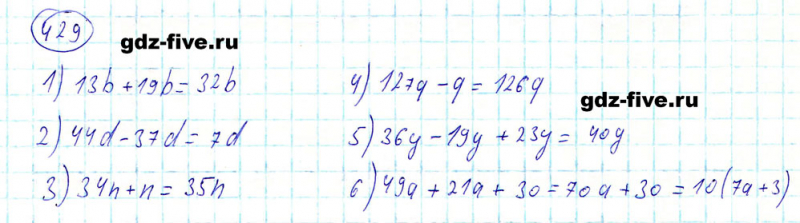 429
gdz-five.ru
1) 13b + 19b = 32b
2) 44d - 37d = 7d
3) 34n + n = 35n
4) 127q - q = 126q
gdz-five.ru
5) 36y - 19y + 23y = 40y
6) 49a + 21a + 30 = 70a + 30 = 10(7a + 3)